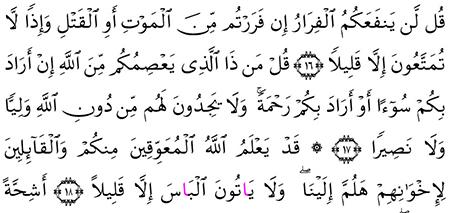 قُل لَّن يَنفَعَكُمُ ٱلْفِرَارُ إِن فَرَرْتُم مِّنَ ٱلْمَوْتِ أَوِ ٱلْقَتْلِ وَإِذًا لَّا
تُمَتَّعُونَ إِلَّا قَلِيلًا ﴿١٦﴾ قُلْ مَن ذَا ٱلَّذِى يَعْصِمُكُم مِّنَ ٱللَّهِ إِنْ أَرَادَ
بِكُمْ سُوٓءًا أَوْ أَرَادَ بِكُمْ رَحْمَةً ۚ وَلَا يَجِدُونَ لَهُم مِّن دُونِ ٱللَّهِ وَلِيًّا
وَلَا نَصِيرًا ﴿١٧﴾ ۞ قَدْ يَعْلَمُ ٱللَّهُ ٱلْمُعَوِّقِينَ مِنكُمْ وَٱلْقَآئِلِينَ
لِإِخْوَٰنِهِمْ هَلُمَّ إِلَيْنَا ۖ وَلَا يَاتُونَ ٱلْبَاسَ إِلَّا قَلِيلًا ﴿١٨﴾ أَشِحَّةً